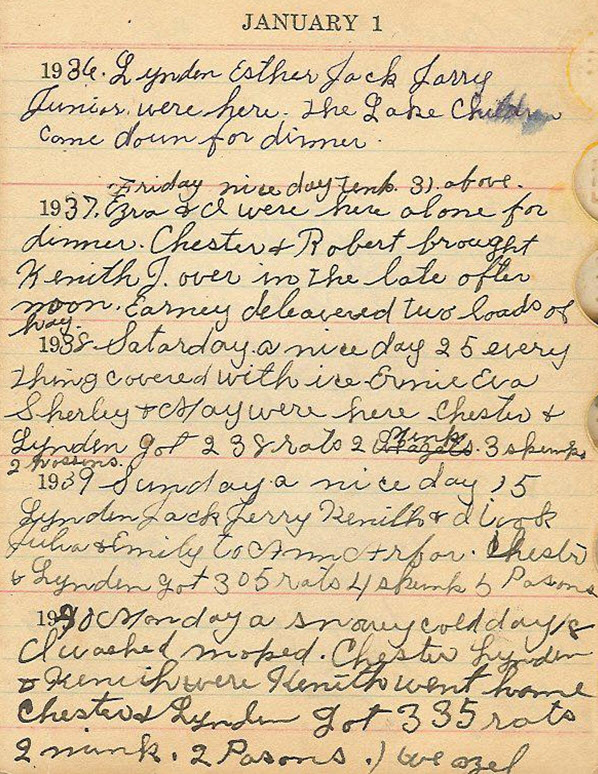 JANUARY 1
1936. Lynden Esther Jack Jarry
Junior were here. The Lake Children
come down for dinner.
Friday nice day temp. 31 above.
1937. Ezra & I were here alone for
dinner. Chester & Robert brought
Kenith J. over in the late after
noon. Earney deleavered two loads of
hay.
1938 Satarday a nice day 25 every
thing covered with ice Ernie Eva
Sherley & May were here Chester &
Lynden got 238 rats 2 mink 3 skunks
2 Possins.
1939 Sunday a nice day 15
Lynden Jack Jerry Kenith & I took
Julia & Emily to Ann Arbor. Chester
& Lynden got 305 rats 4 skunk 5 Pasons
1940 Monday a snowy cold day 18
I washed moped. Chester Lynden
& Kenith were Kenith went home
Chester & Lynden got 335 rats
2 mink. 2 Pasons. 1 weazel